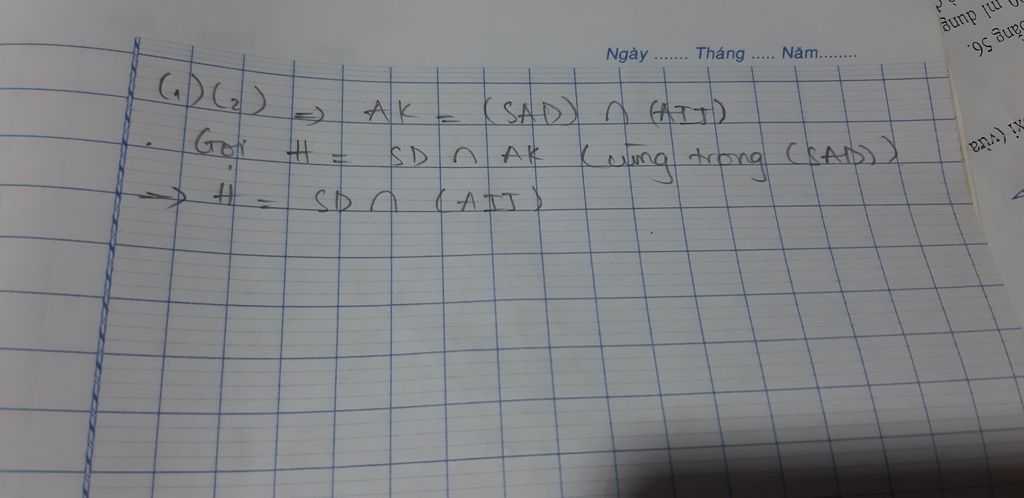 Ngày ....... Tháng ..... Năm........
(1)(2) => AK = (SAD) ∩ (AIJ)
. Gọi H = SD ∩ AK (cùng trong (SAD))
-> H = SD ∩ (AIJ)
ml dung
bằng 56.
xi (vừa